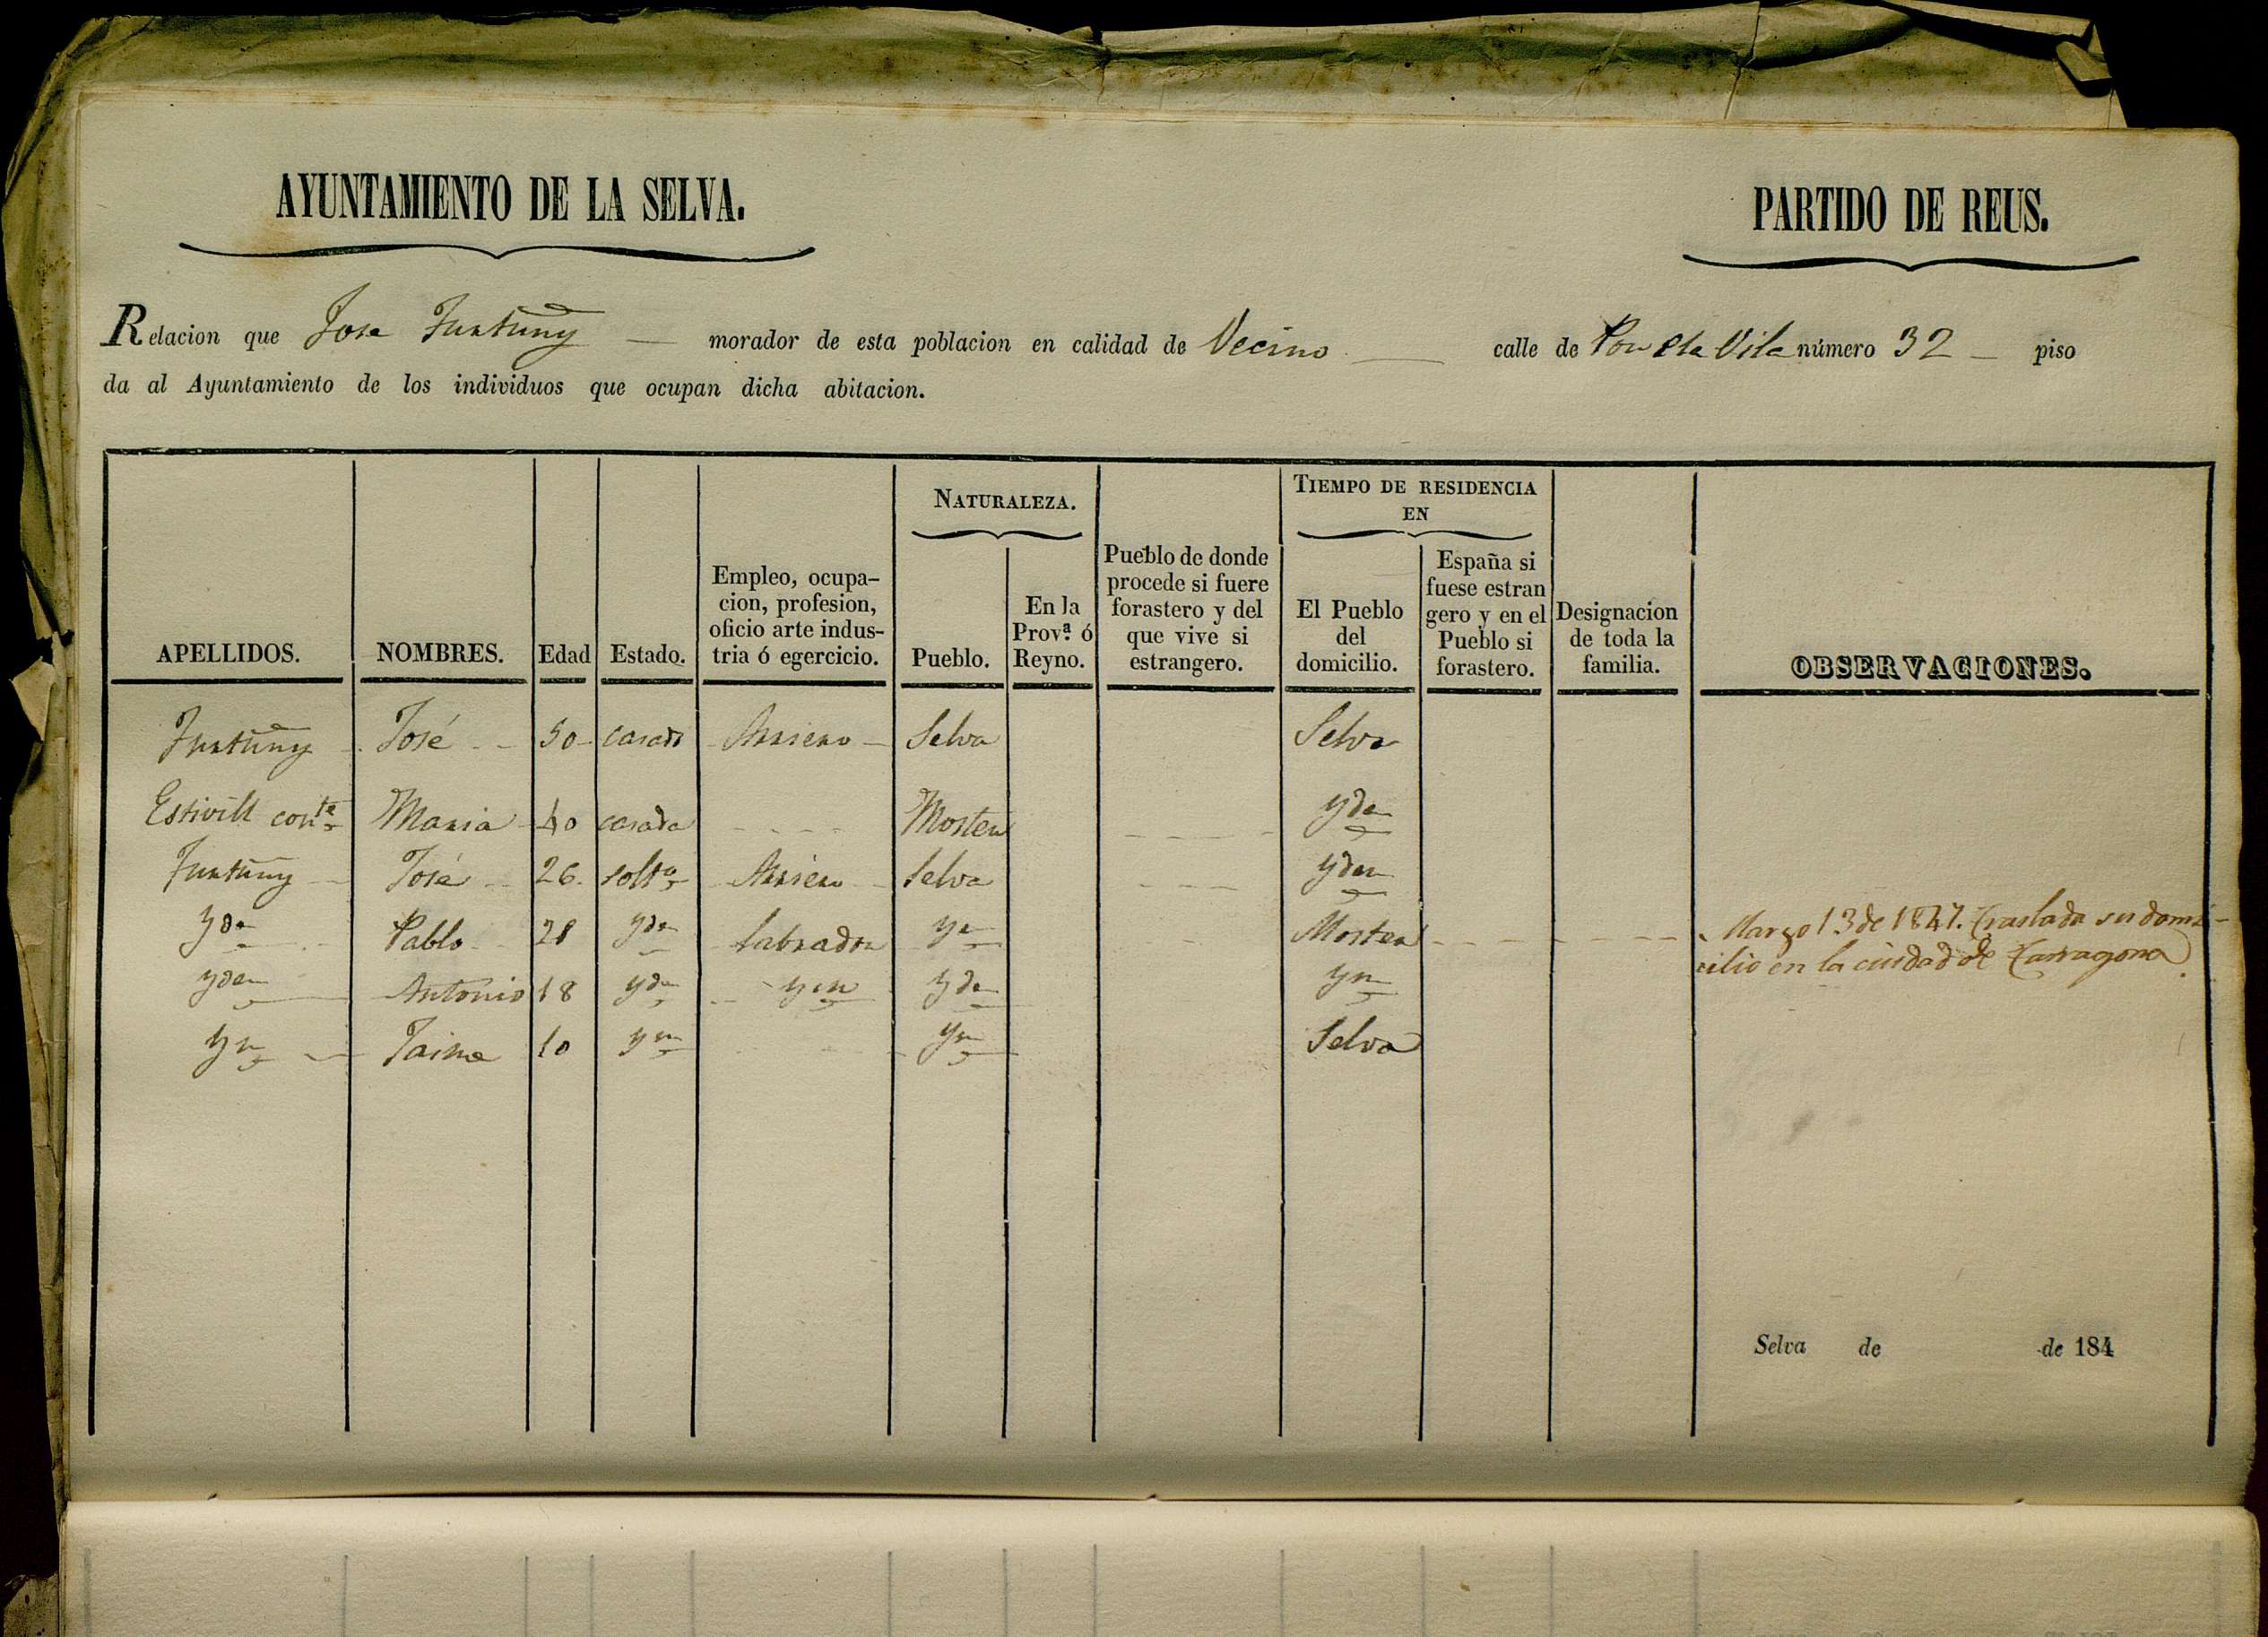 AYUNTAMIENTO DE LA SELVA.
PARTIDO DE REUS.
Relacion que Jose Furtuny morador de esta poblacion en calidad de Vecino calle de Pou de la Vila número 32 piso
da al Ayuntamiento de los individuos que ocupan dicha abitacion.
APELLIDOS.
NOMBRES.
Edad
Estado.
Empleo, ocupa-
cion, profesion,
oficio arte indus-
tria ó egercicio.
NATURALEZA.
Pueblo.
En la
Prov.ª ó
Reyno.
Pueblo de donde
procede si fuere
forastero y del
que vive si
estrangero.
TIEMPO DE RESIDENCIA
EN
El Pueblo
del
domicilio.
España si
fuese estran
gero y en el
Pueblo si
forastero.
Designacion
de toda la
familia.
OBSERVACIONES.
Furtuny José 50 casado Arriero Selva Selva
Estivill conte Maria 40 casada Morter yden
Furtuny José 26 solto Arriero Selva yden
yden Pablo 28 yden labrador yn Morter Marzo 13 de 1847. Traslada su domi-
cilio en la ciudad de Tarragona.
yden Antonio 18 yden yn yden yn
yn Jaime 10 yn yn Selva
Selva de de 184